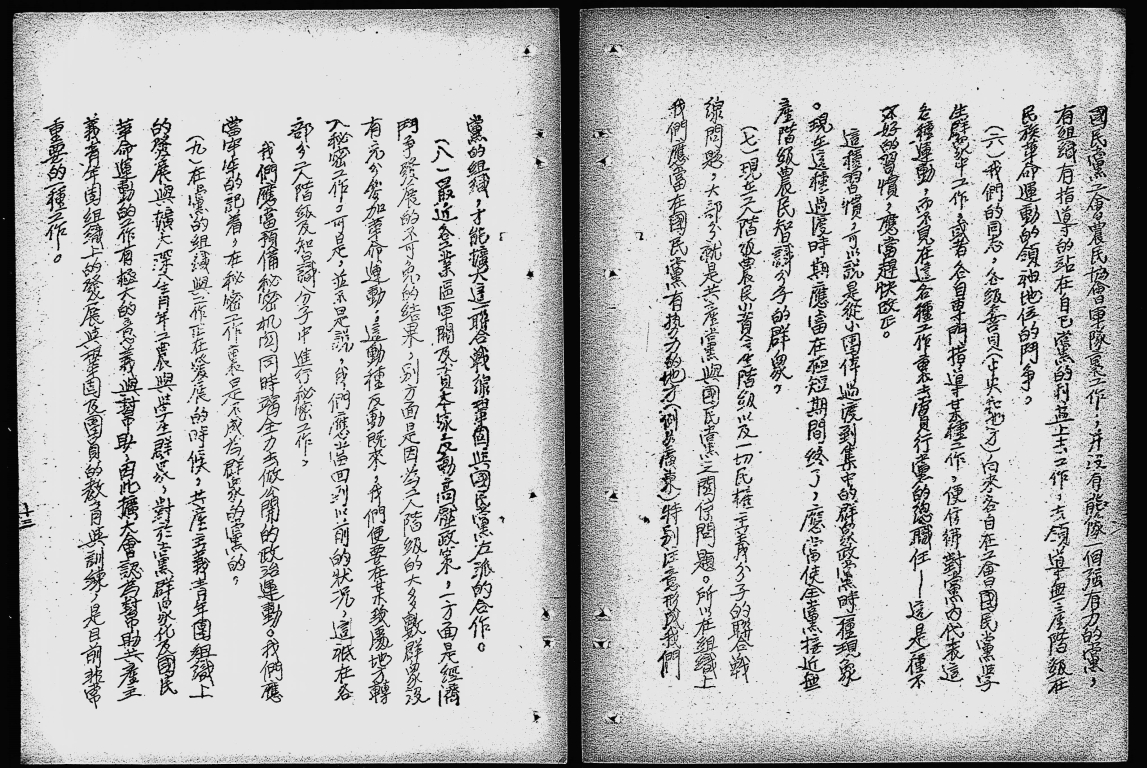 國民黨工會農民協會軍隊裏工作，并沒有能像一個強有力的黨，
有組織有指導的站在自己黨的利益上去工作，去領導無產階級在
民族革命運動的領袖地位的鬥爭。
（六）我們的同志，各級委員（中央和地方）向來各自在工會國民黨學
生群眾中工作，或者各自專門指導某種工作，便彷彿對黨內代表這
各種運動，而不見在這各種工作裏去實行黨的總職任——這是一種不
好的習慣，應當趕快改正。
這種習慣，可以說是從小團体過渡到集中的群眾政黨時一種現象
。現在這種過渡時期應當在極短期間終了，應當使全黨接近無
產階級農民智識分子的群眾，
（七）現在工人階級農民小資產階級以及一切民權主義分子的聯合戰
線問題，大部分就是共產黨與國民黨之關係問題。所以在組織上
我們應當在國民黨有势力的地方（例如廣東）特別注意形成我們
黨的組織，才能擴大這一聯合戰線鞏固與國民黨左派的合作。
（八）最近各業區軍閥及資本家反動高壓政策，一方面是經濟
鬥爭發展的不可免的結果，別方面是因為工人階級的大多數群眾沒
有充分參加革命運動，這動種反動既來，我們便要在某幾處地方轉
入秘密工作。可是，並不是說，我們應當回到以前的狀況，這祗在各
部分工人階級及知識分子中進行秘密工作，
我們應當預備秘密机関同時盡全力去做公開的政治運動。我們應
當牢牢的記着，在秘密工作裏是不成為群眾的黨的。
（九）在黨的組織與工作正在發展的時候，共產主義青年團組織上
的發展與擴大深入青年工農與學生群眾，對於黨群眾化及國民
革命運動的工作有極大的意義與幫助，因此擴大會認為幫助共產主
義青年團組織上的發展與鞏固及團員的教育與訓練，是目前非常
重要的一種工作。
十二